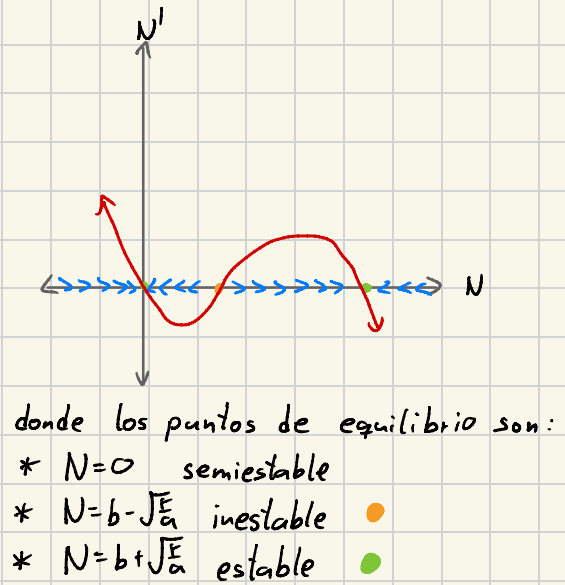 N'
N
donde los puntos de equilibrio son:
* N=0 semiestable
* N=b-√(E/a) inestable
* N=b+√(E/a) estable